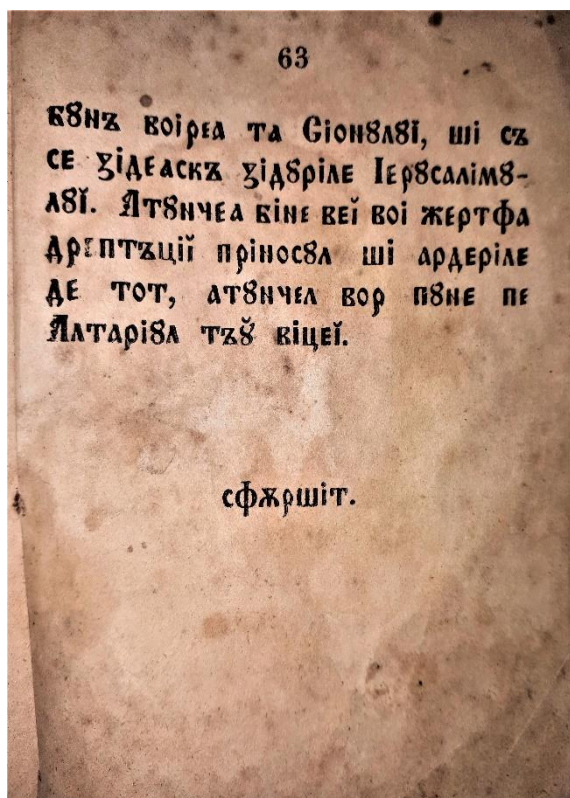 63
бꙋнъ воірєа та Сіонꙋлꙋї, ші съ
сє ꙁідєаскъ ꙁідꙋрілє Ієрꙋсалімꙋ-
лꙋї. Атꙋнчєа бінє вєї воі жєртфа
дрєптъції прінОсꙋл ші ардєрілє
дє тот, атꙋнчєл вор пꙋнє пє
Алтаріꙋл тъꙋ̆ віцєї.
сфѫршіт.